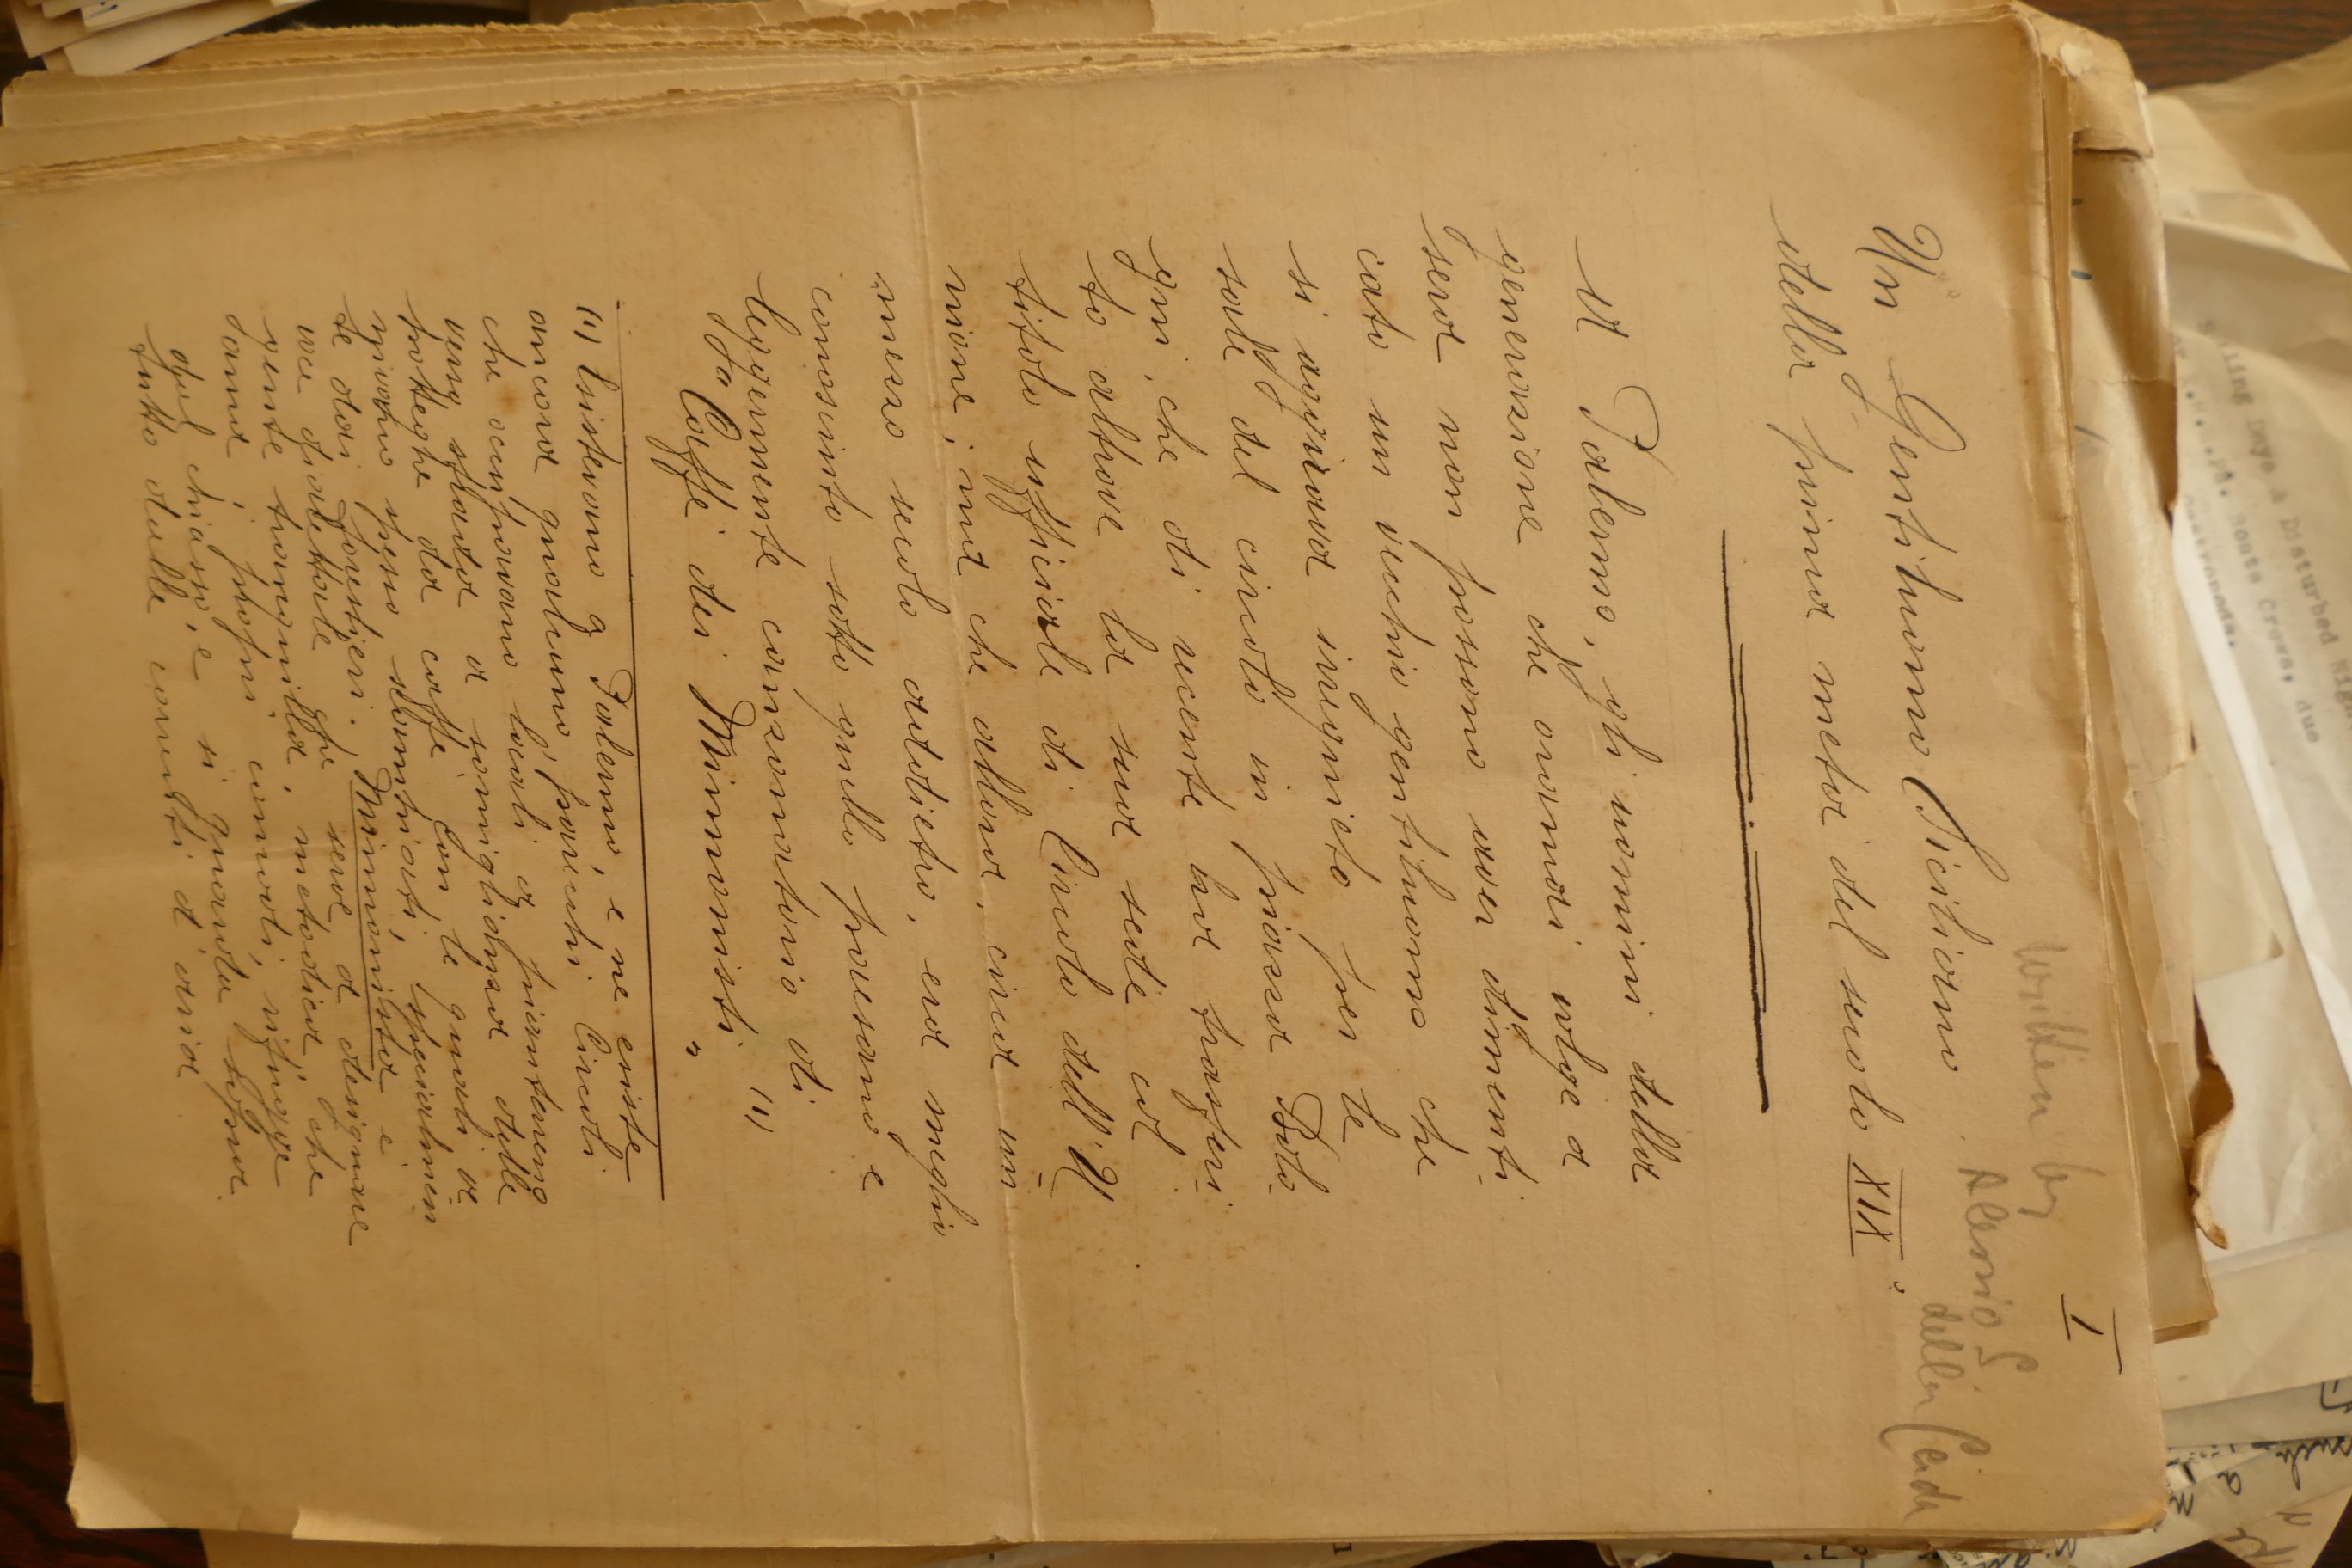 ling Days & Disturbed Nigh
Boats Crews, due
I
written by
Alessio S.
della Cerda
Un Gentiluomo Siciliano
della prima metà del secolo XIX°
A Palermo, gli uomini della
generazione che oramai volge a
sera non possono aver dimenti-
cato un vecchio gentiluomo che
si aggirava irrequieto per le
sale del circolo in piazza Bolo-
gni, che di recente ha trasferi-
to altrove la sua sede col
titolo ufficiale di Circolo dell'U-
nione; ma che allora, circa un
mezzo secolo addietro, era meglio
conosciuto sotto quello paesano e
leggermente canzonatorio di
"Caffè dei Minnonisti" (1)
(1) Esistevano a Palermo, e ne esiste
ancora qualcuno, parecchi Circoli
che occupavano locali a pianterreno
verso strada a somiglianza delle
botteghe da caffè con le quali ve-
nivano spesso scambiati, specialmen-
te dai forestieri. Minnonista è
voce dialettale che serve a designare
gente tranquilla, metodica, che
ama i propri comodi, rifugge
dal chiasso, e si guarda sopra-
tutto dalle correnti d'aria